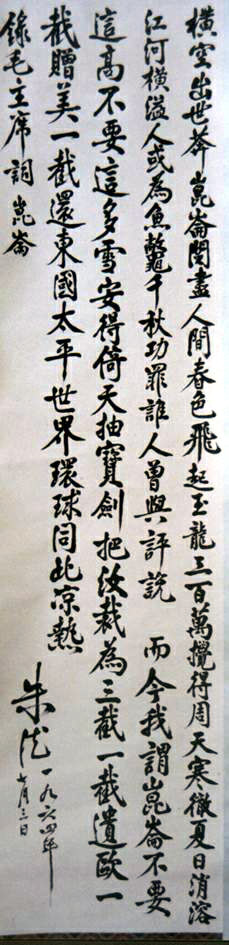 橫空出世莽崑崙閱盡人間春色飛起玉龍三百萬攪得周天寒徹夏日消溶
江河橫溢人或為魚鼈千秋功罪誰人曾與評説 而今我謂崑崙不要
這高不要這多雪安得倚天抽寶劍把汝裁為三截一截遺歐一
截贈美一截還東國太平世界環球同此凉熱
錄毛主席詞崑崙
朱德
一九六四年
七月三日